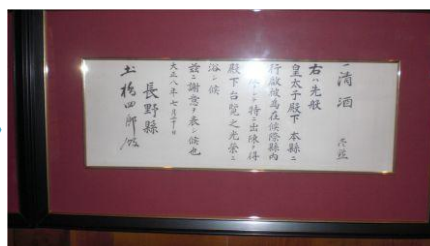 一清酒
右ハ先般
皇太子殿下本縣ニ
行啓被為在候際縣内
特ニ出陳ヲ得
殿下台覧之光榮ニ
浴シ候
茲ニ謝意ヲ表シ候也
大正八年七月 日
長野縣
土橋四郎殿